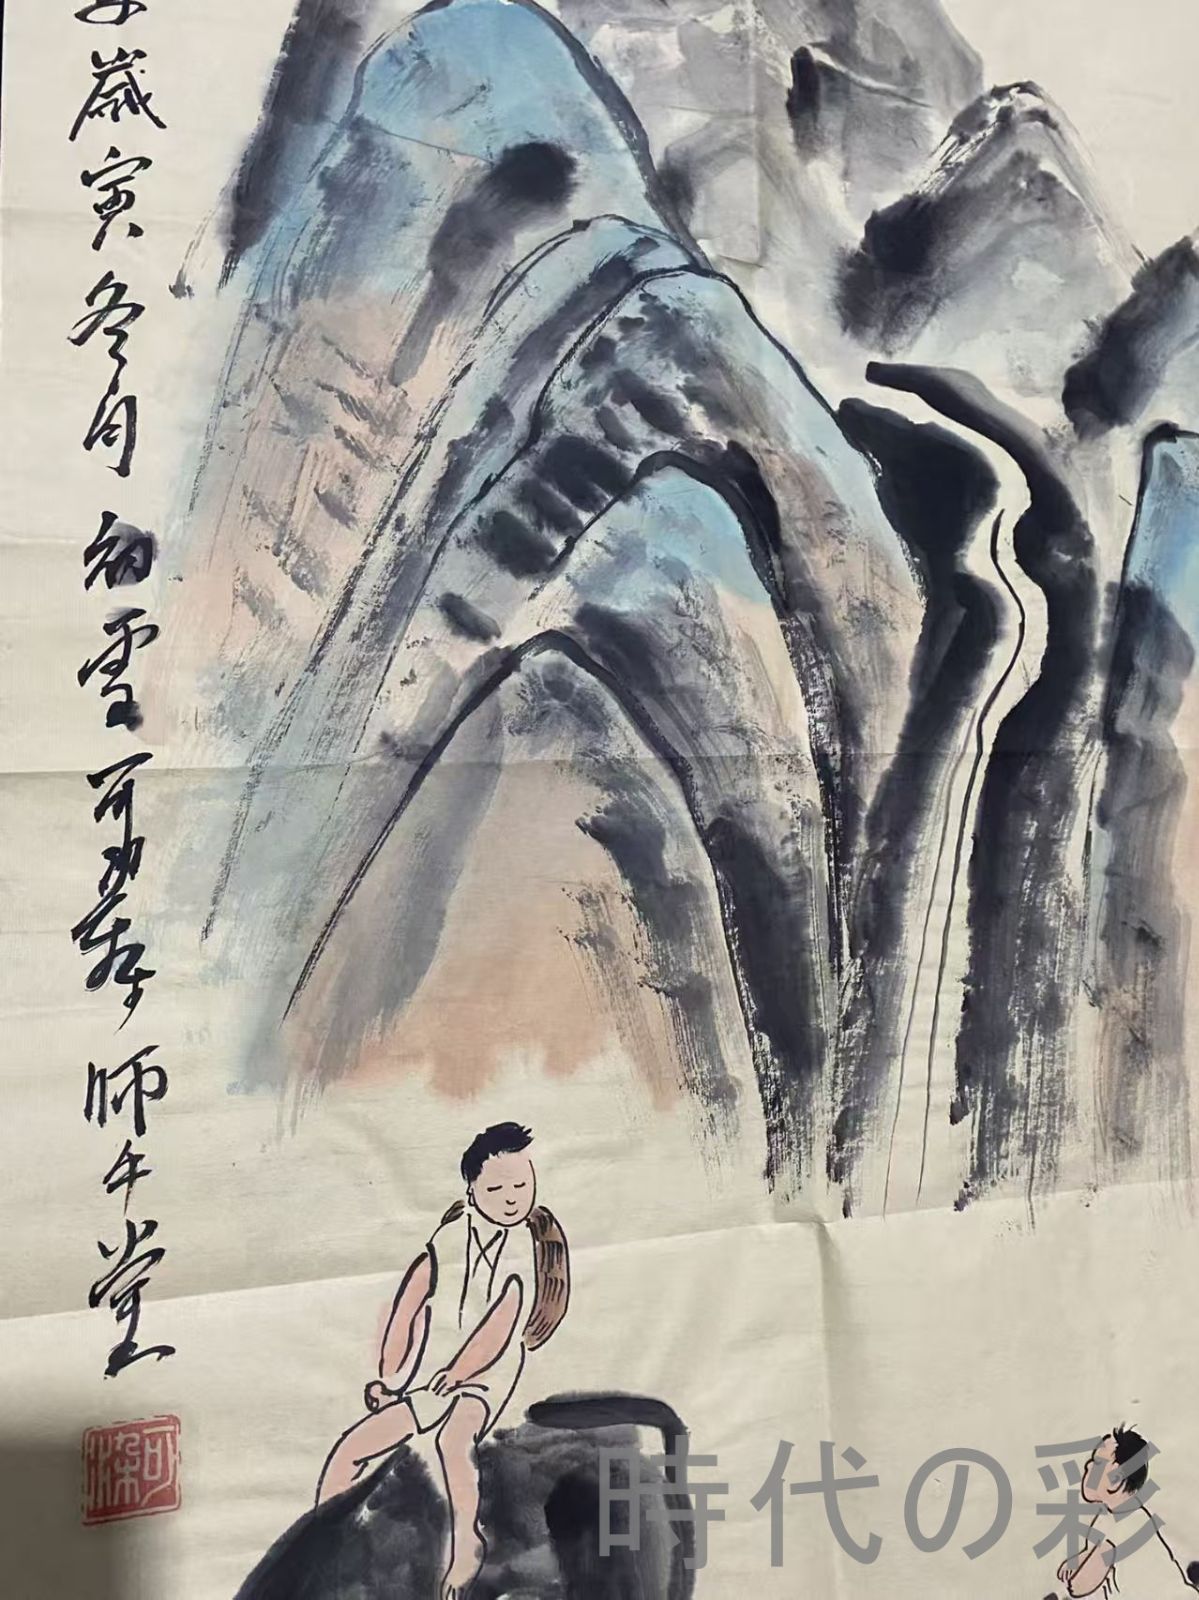 歲寅冬月初雪可染師牛堂
可染
時代の彩